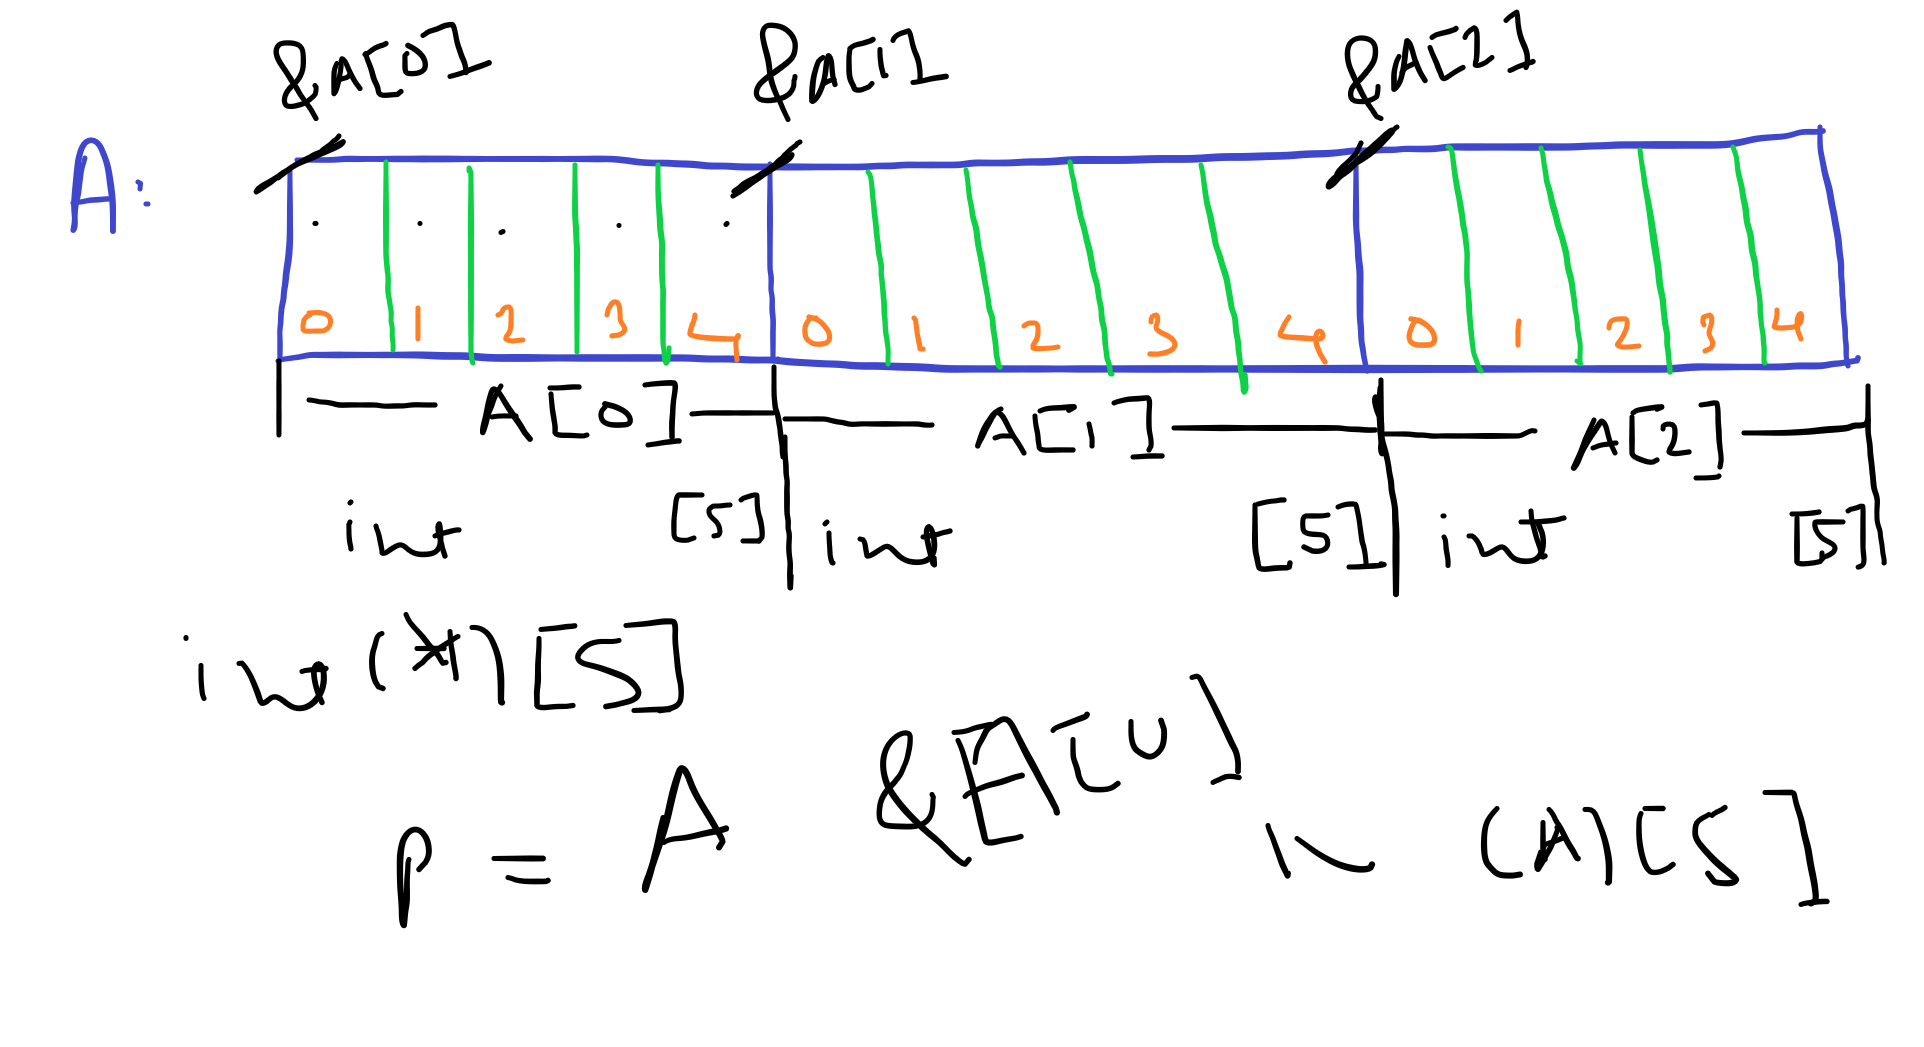 &A[0] &A[1] &A[2]
A:
0 1 2 3 4 0 1 2 3 4 0 1 2 3 4
A[0] A[1] A[2]
int [5] int [5] int [5]
int (*) [5]
p = A &A[0] (A)[5]